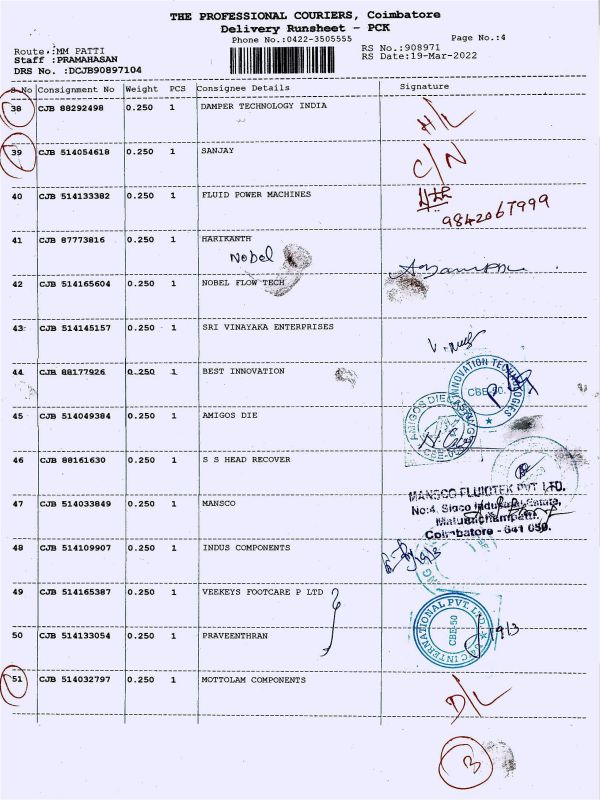 THE PROFESSIONAL COURIERS, Coimbatore
Delivery Runsheet - PCK
Phone No.:0422-3505555
Page No.:4
Route :MM PATTI
Staff :PRAMAHASAN
DRS No. :DCJB90897104
RS No.:908971
RS Date:19-Mar-2022
S.No Consignment No Weight PCS Consignee Details Signature
38 CJB 88292498 0.250 1 DAMPER TECHNOLOGY INDIA H/L
39 CJB 514054618 0.250 1 SANJAY C/N
40 CJB 514133382 0.250 1 FLUID POWER MACHINES
9842067999
41 CJB 87773816 0.250 1 HARIKANTH
Nobel
42 CJB 514165604 0.250 1 NOBEL FLOW TECH
43 CJB 514145157 0.250 1 SRI VINAYAKA ENTERPRISES
44 CJB 88177926 0.250 1 BEST INNOVATION
INNOVATION TECHNOLOGIES
CBE-50
45 CJB 514049384 0.250 1 AMIGOS DIE
AMIGOS DIE CASTING
46 CJB 88161630 0.250 1 S S HEAD RECOVER
47 CJB 514033849 0.250 1 MANSCO
MANSCO FLUIDTEK PVT LTD.
No:4, Sidco Industrial Estate,
Malumichampatti,
Coimbatore - 641 050.
48 CJB 514109907 0.250 1 INDUS COMPONENTS
19/3
49 CJB 514165387 0.250 1 VEEKEYS FOOTCARE P LTD
INTERNATIONAL PVT. LTD.
CBE-50
50 CJB 514133054 0.250 1 PRAVEENTHRAN
19/3
51 CJB 514032797 0.250 1 MOTTOLAM COMPONENTS D/L
3